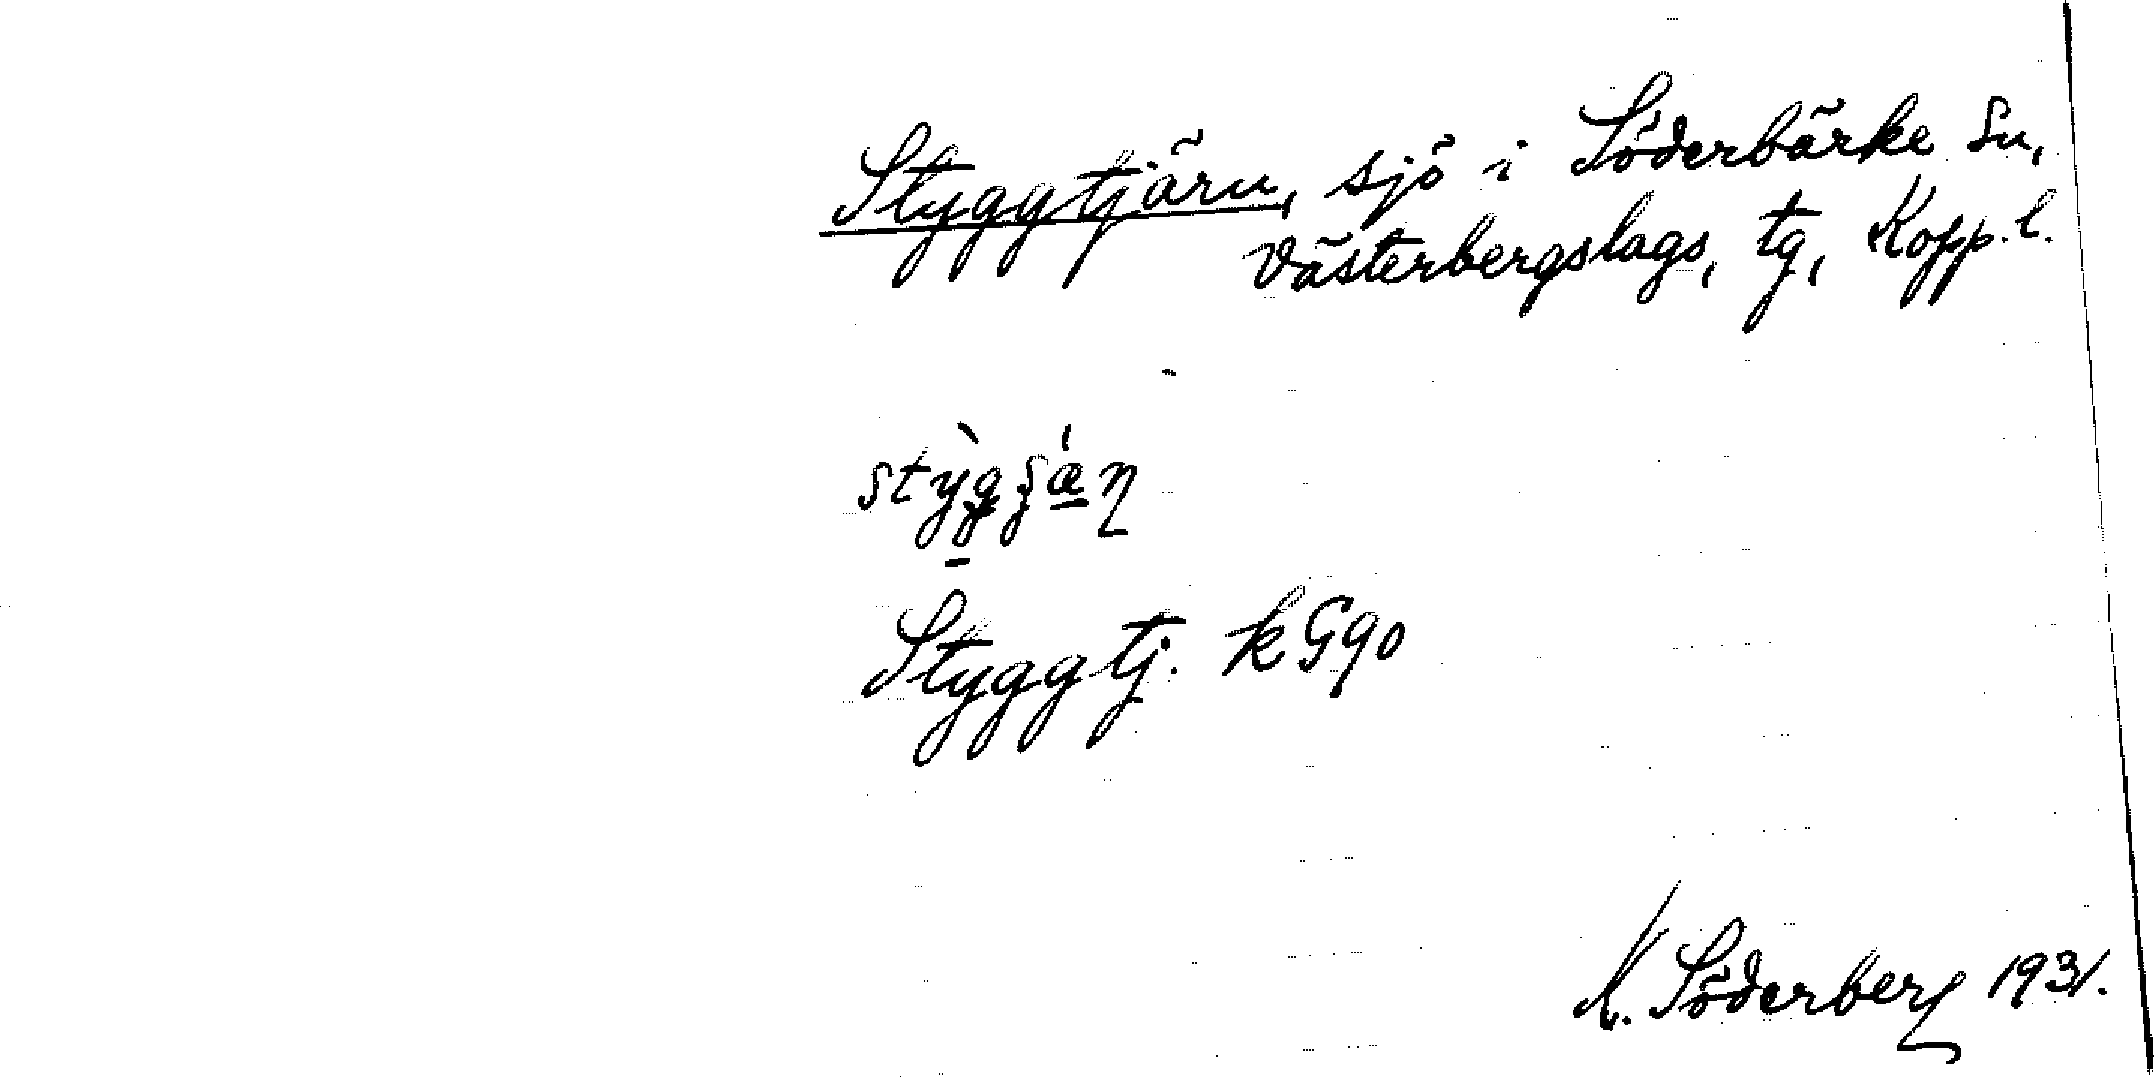 Styggtjärn, sjö i Söderbärke sn,
Västerbergslags, tg, Kopp. l.
Styggtj. k G90
K. Söderberg 1931.